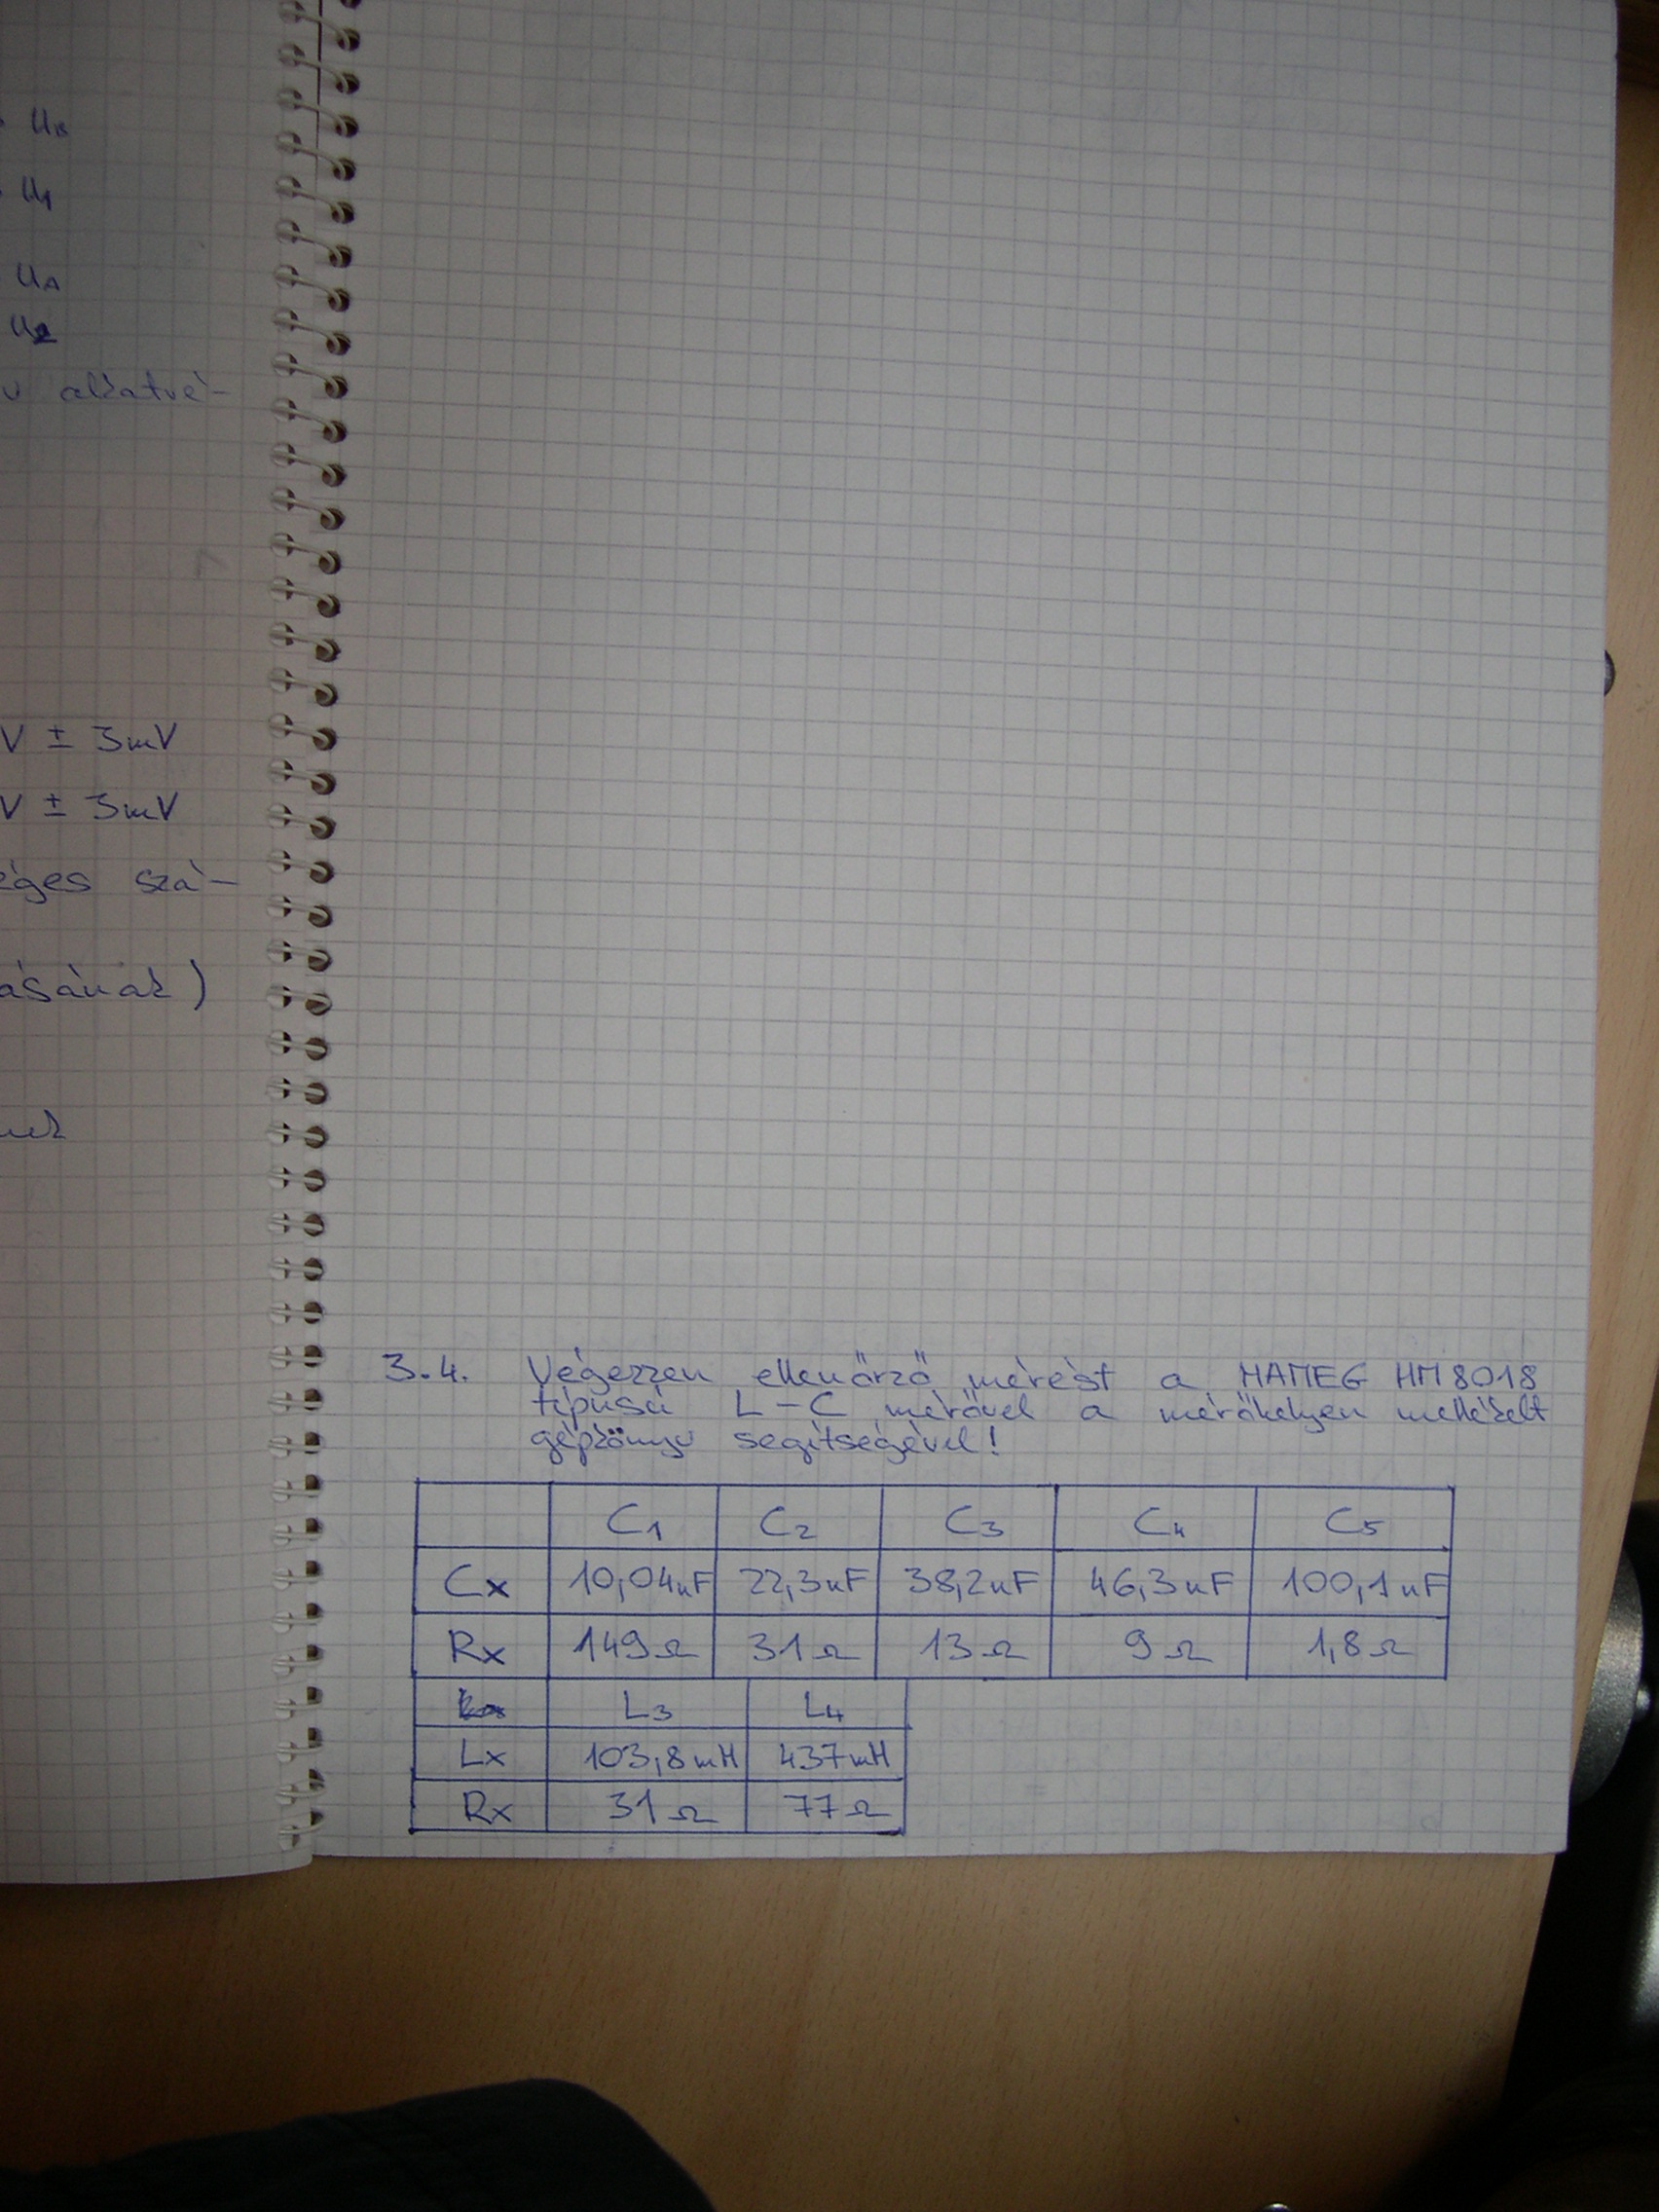 UB
U1
UA
U2
alkatré-
V ± 3mV
V ± 3mV
éges szá-
ásának)
3.4. Végezzen ellenőrző mérést a HAMEG HM8018
típusú L-C mérővel a mérőhelyen mellékelt
gépkönyv segítségével!
C1 C2 C3 C4 C5
Cx 10,04nF 22,3nF 38,2nF 46,3nF 100,1nF
Rx 149Ω 31Ω 13Ω 9Ω 1,8Ω
L3 L4
Lx 103,8mH 437mH
Rx 31Ω 77Ω